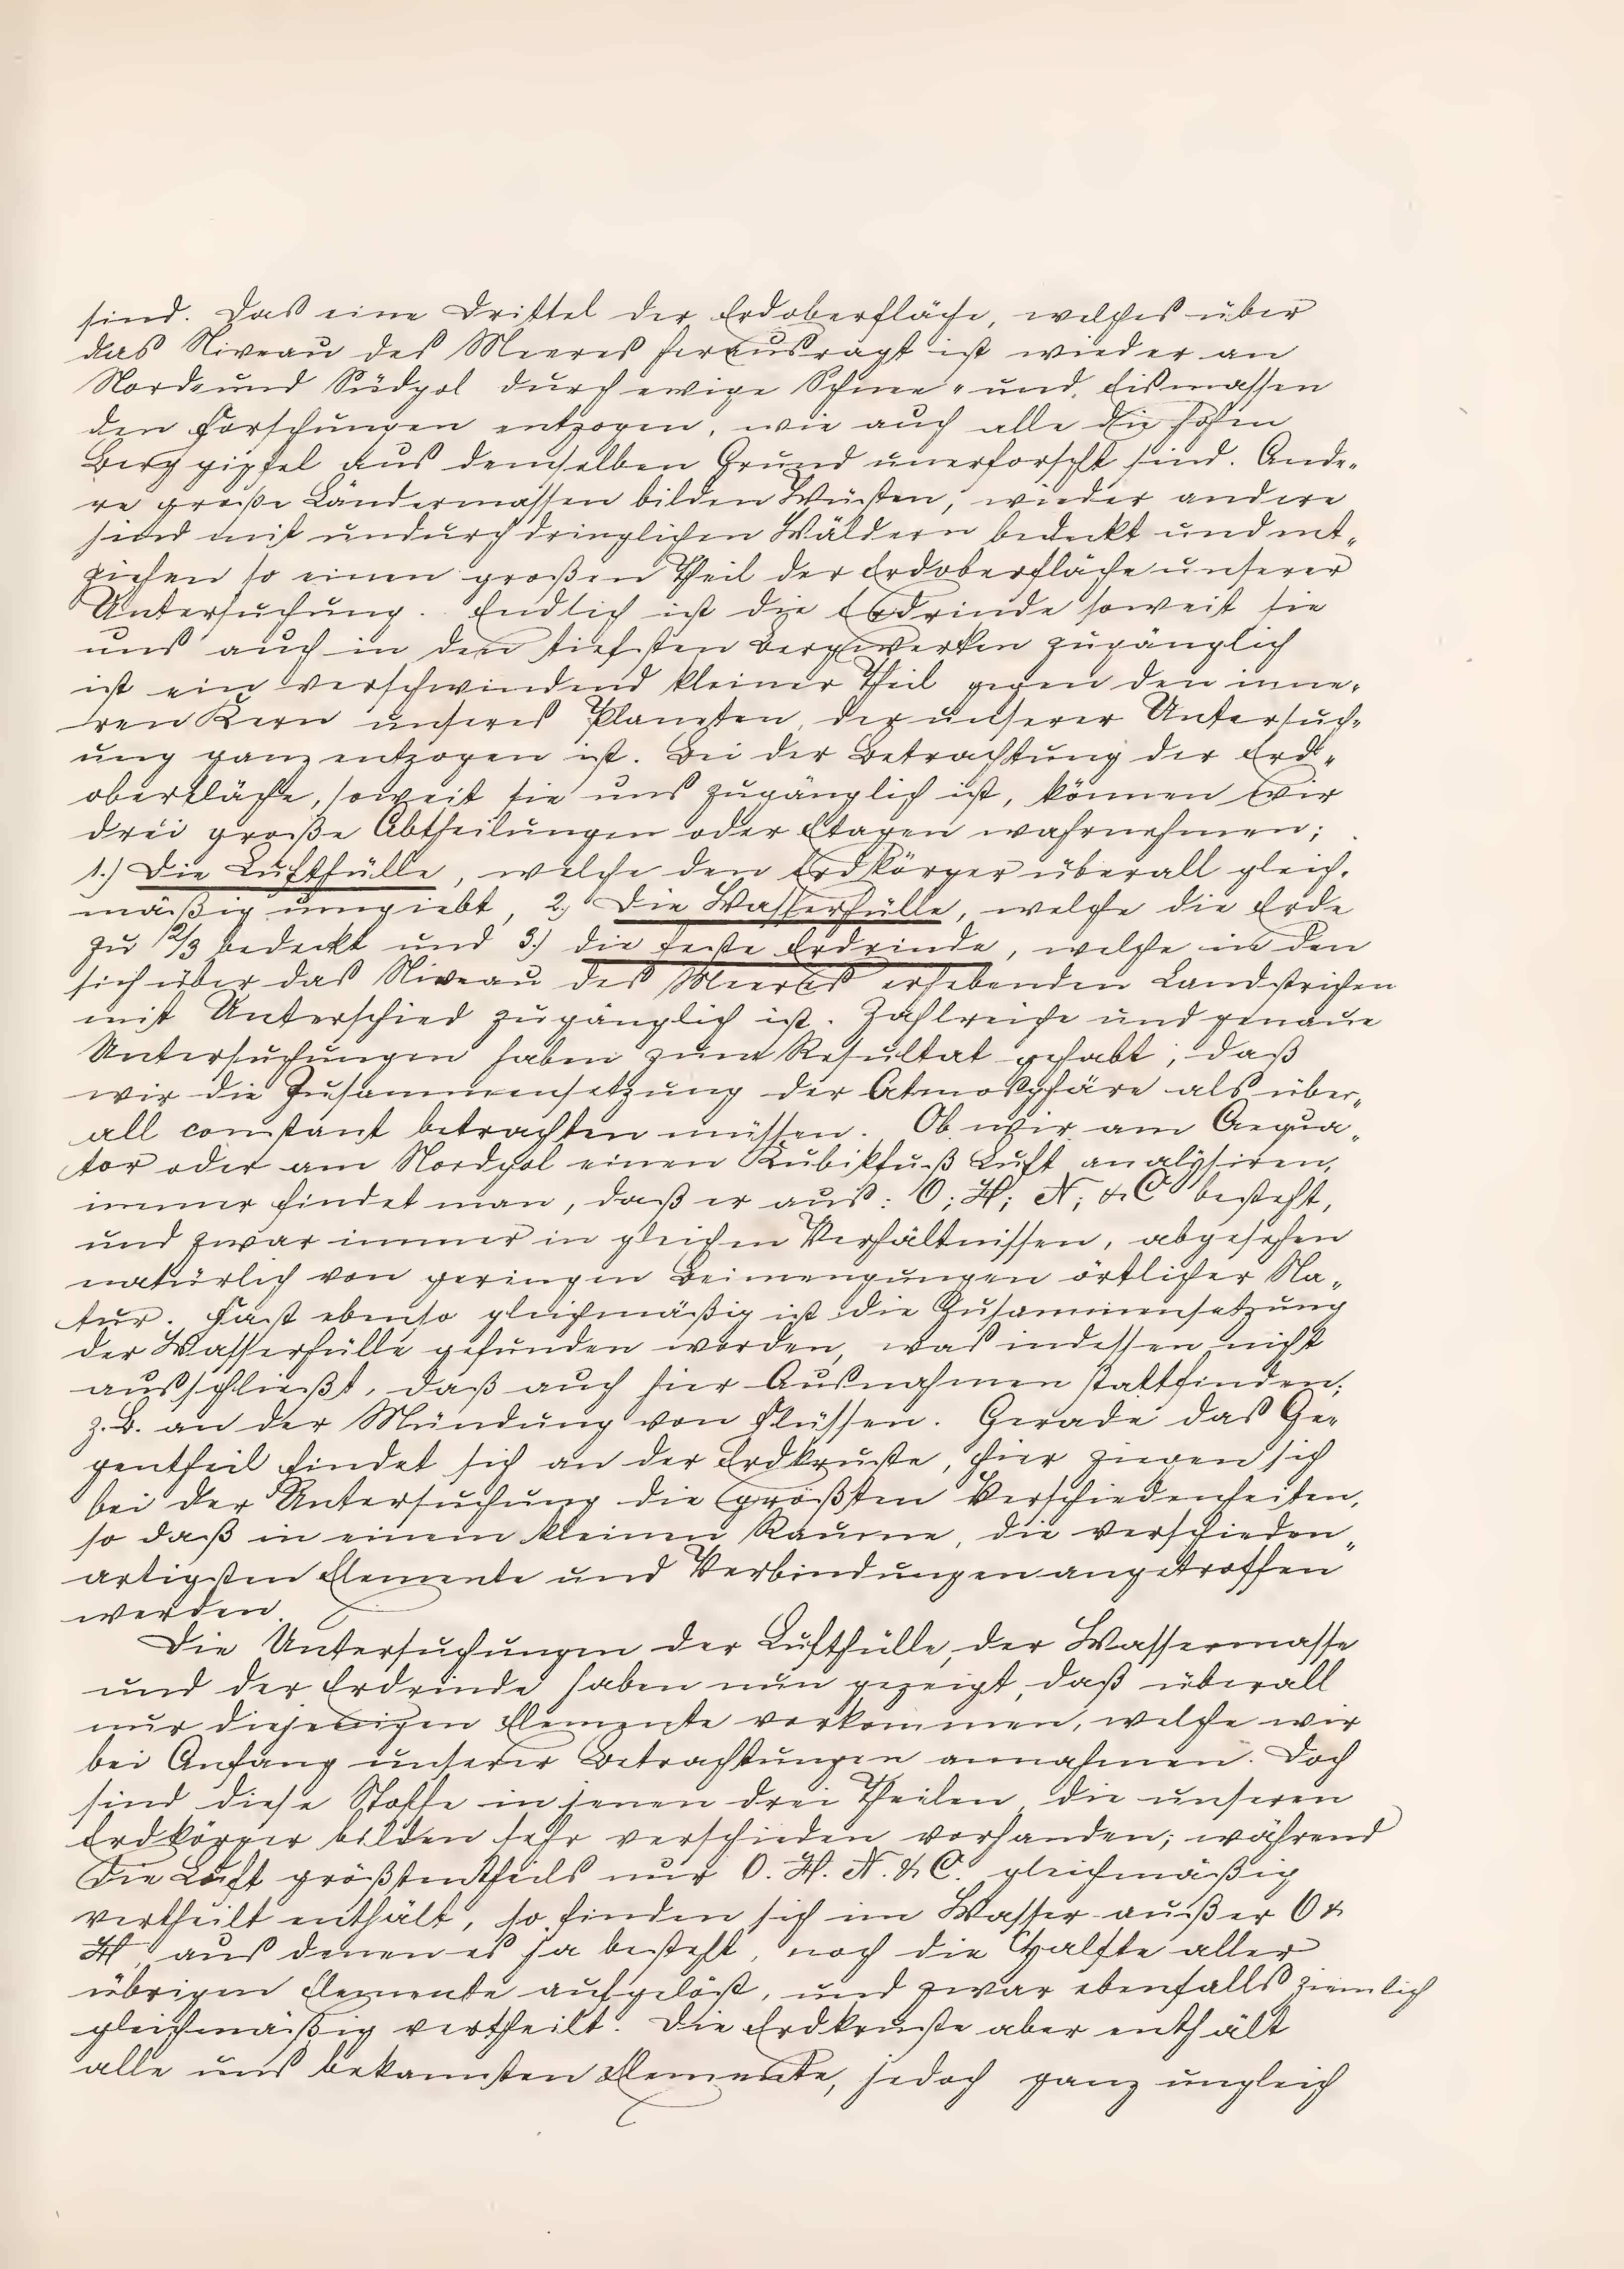 sind. Das eine Drittel der Erdoberfläche, welches über
das Niveau des Meeres herausragt ist wieder an
Nord- und Südpol durch ewige Schnee- und Eismassen
den Forschungen entzogen, wie auch alle die hohen
Berggipfel aus demselben Grund unerforscht sind. Ande-
re große Ländermassen bilden Wüsten, wieder andere
sind mit undurchdringlichen Wäldern bedeckt und ent-
ziehen so einen großen Theil der Erdoberfläche unserer
Untersuchung. Endlich ist die Erdrinde soweit sie
uns auch in den tiefsten Bergwerken zugänglich
ist ein verschwindend kleiner Theil gegen den inne-
ren Kern unseres Planeten, der unserer Untersuch-
ung ganz entzogen ist. Bei der Betrachtung der Erd-
oberfläche, soweit sie uns zugänglich ist, können wir
drei große Abtheilungen oder Etagen wahrnehmen;
1.) Die Lufthülle, welche den Erdkörper überall gleich-
mäßig umgiebt, 2.) Die Wasserhülle, welche die Erde
zu 2/3 bedeckt und 3.) die feste Erdrinde, welche in den
sich über das Niveau des Meeres erhebenden Landstrichen
mit Unterschied zugänglich ist. Zahlreiche und genaue
Untersuchungen haben zum Resultat gehabt, daß
wir die Zusammensetzung der Atmosphäre als über-
all constant betrachten müssen. Ob wir am Aequa-
tor oder am Nordpol einen Kubikfuß Luft analysiren,
immer findet man, daß er aus: O; H; N; & C besteht,
und zwar immer in gleichen Verhältnissen, abgesehen
natürlich von geringen Beimengungen örtlicher Na-
tur. Fast ebenso gleichmäßig ist die Zusammensetzung
der Wasserhülle gefunden worden, was indessen nicht
ausschließt, daß auch hier Ausnahmen stattfinden;
z. B. an der Mündung von Flüssen. Gerade das Ge-
gentheil findet sich an der Erdkruste, hier zeigen sich
bei der Untersuchung die größten Verschiedenheiten,
so daß in einem kleinen Raume, die verschieden-
artigsten Elemente und Verbindungen angetroffen
werden.
Die Untersuchungen der Lufthülle, der Wassermasse
und der Erdrinde haben nun gezeigt, daß überall
nur diejenigen Elemente vorkommen, welche wir
bei Anfang unserer Betrachtungen annahmen. Doch
sind diese Stoffe in jenen drei Theilen, die unseren
Erdkörper bilden sehr verschieden vorhanden; während
die Luft größtentheils nur O. H. N. & C. gleichmäßig
vertheilt enthält, so finden sich im Wasser außer O &
H, aus denen es ja besteht, noch die Hälfte aller
übrigen Elemente aufgelöst, und zwar ebenfalls ziemlich
gleichmäßig vertheilt. Die Erdkruste aber enthält
alle uns bekannten Elemente, jedoch ganz ungleich